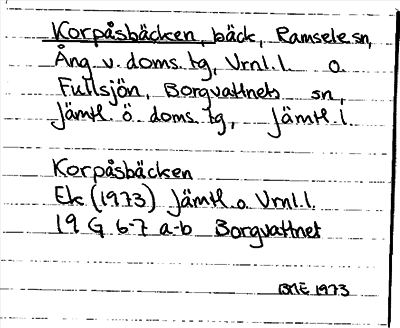 Korpåsbäcken, bäck, Ramsele sn,
Ång. v. doms. tg, Vrnl. l. o.
Fullsjön, Borgvattnets sn,
Jämtl. ö. doms. tg, Jämtl. l.
Korpåsbäcken
Ek (1973) Jämtl. o. Vrnl. l.
19 G 6-7 a-b Borgvattnet
BME 1973